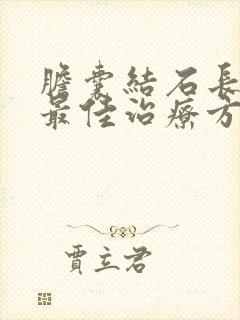 膽囊結石長
最佳治療方
賈立君